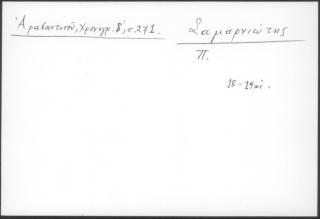 Ἀραβαντινοῦ, Χρονογρ. Β', σ 271.
Σαμαρνιώτης
Π.
18-19 αἰ.